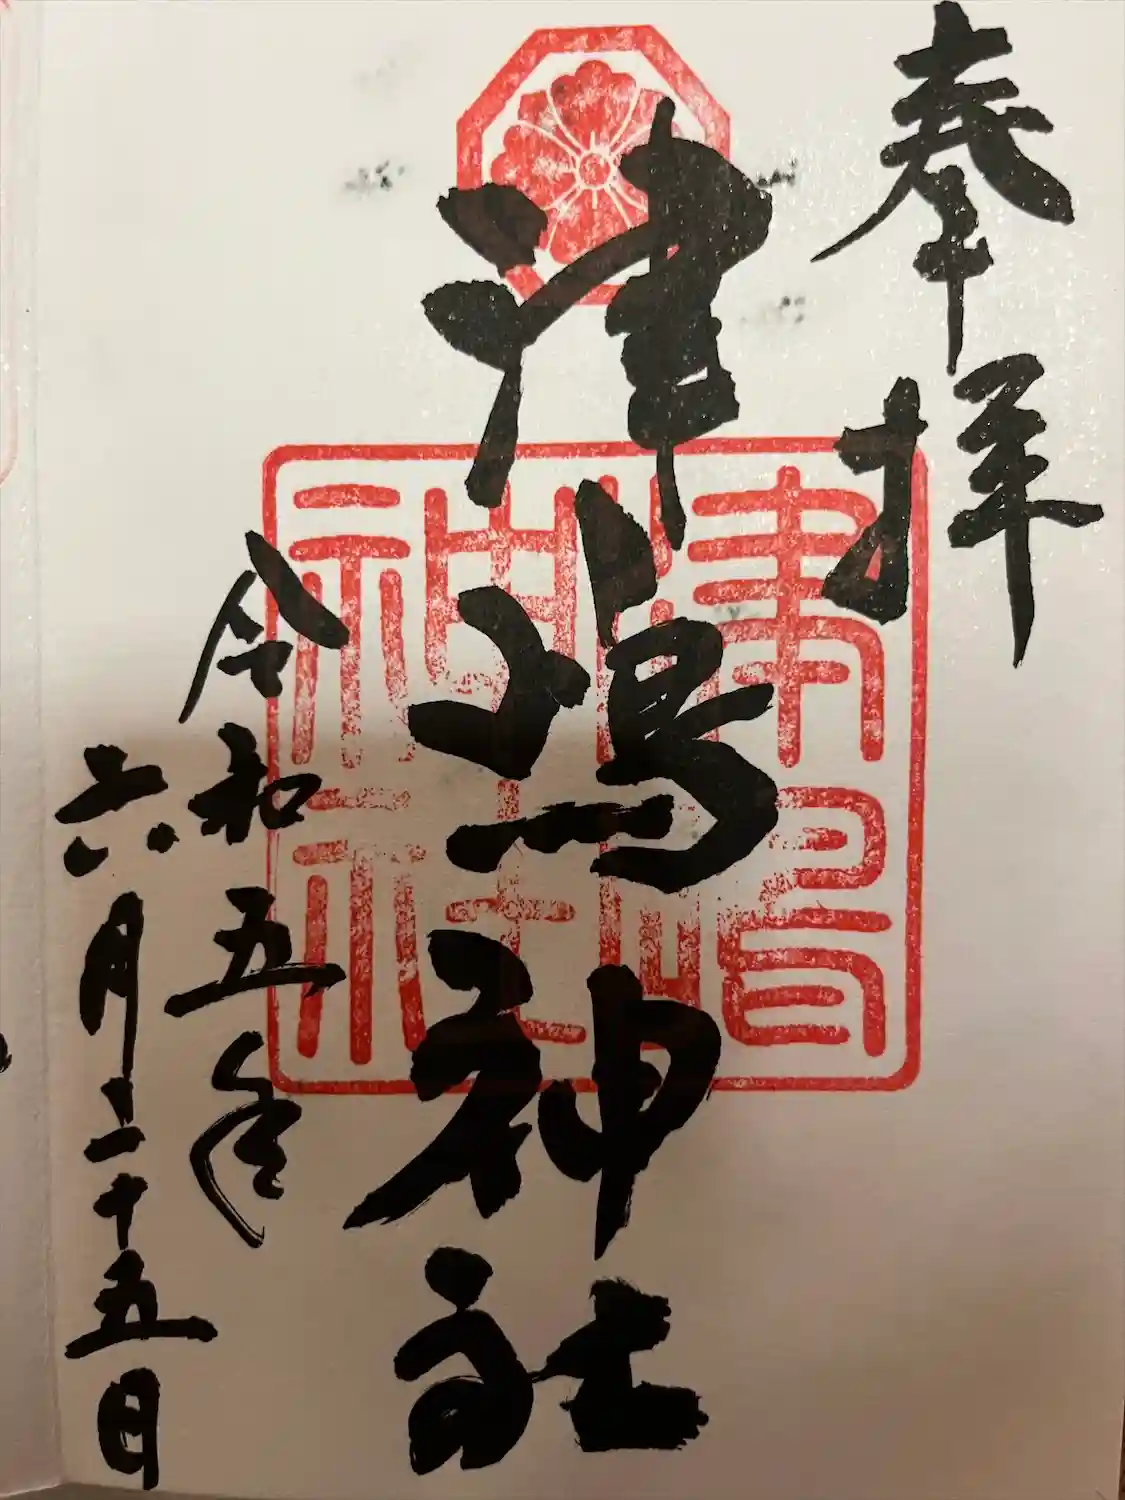 奉拝
津嶋神社
令和五年
六月二十五日